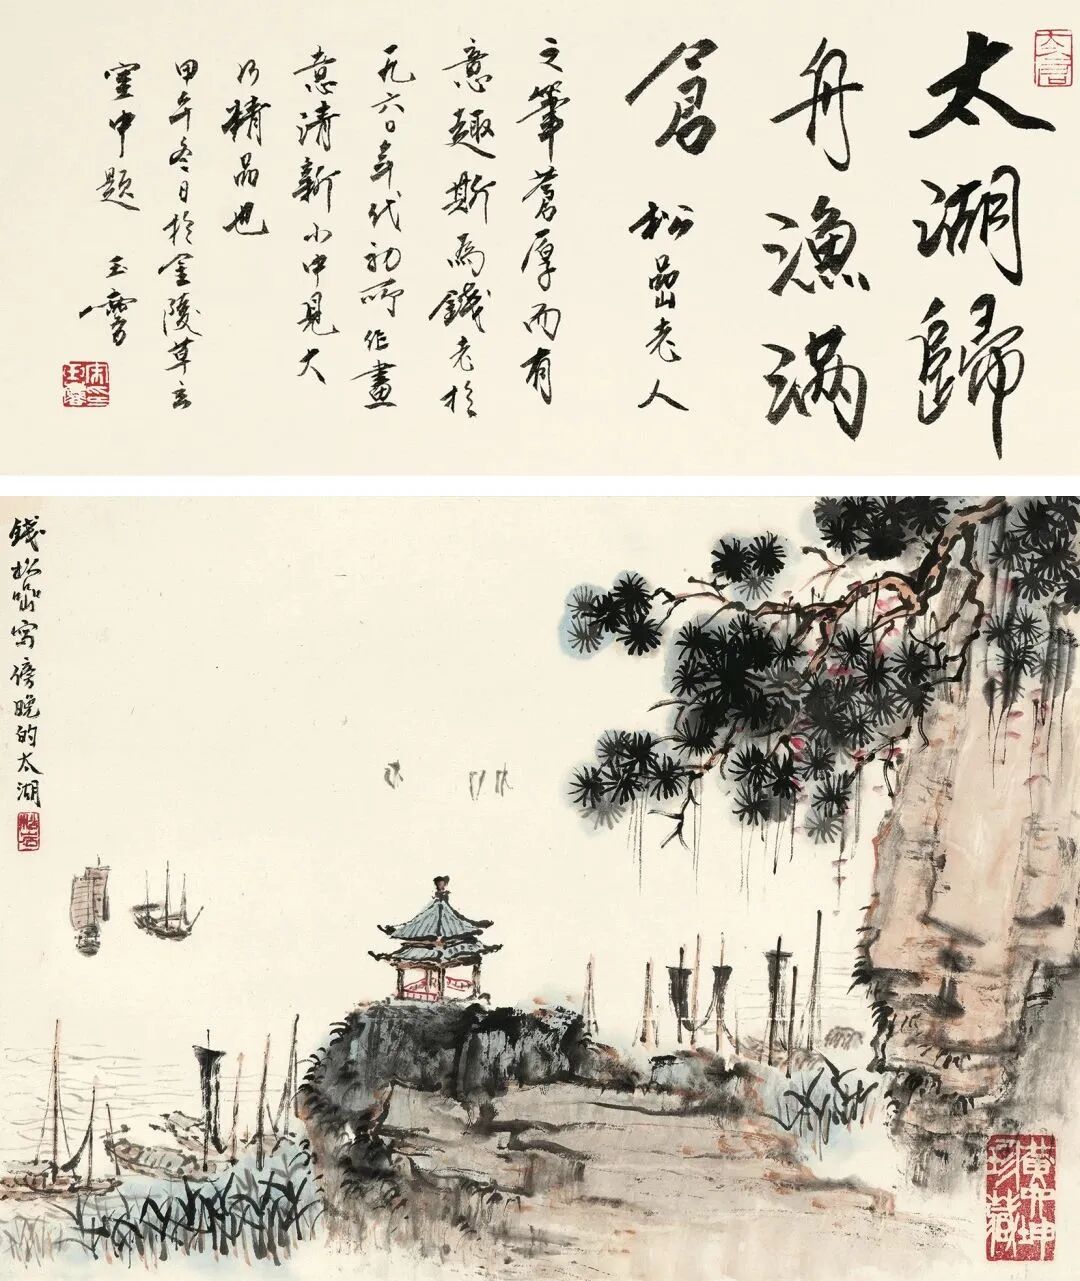 太湖歸
舟漁滿
倉 松嵒老人
之筆蒼厚而有
意趣斯為錢老於
一九六〇年代初所作畫
意清新小中見大
乃精品也
甲午冬日於金陵草玄
室中題 玉麐
錢松嵒寫傍晚的太湖
珍藏